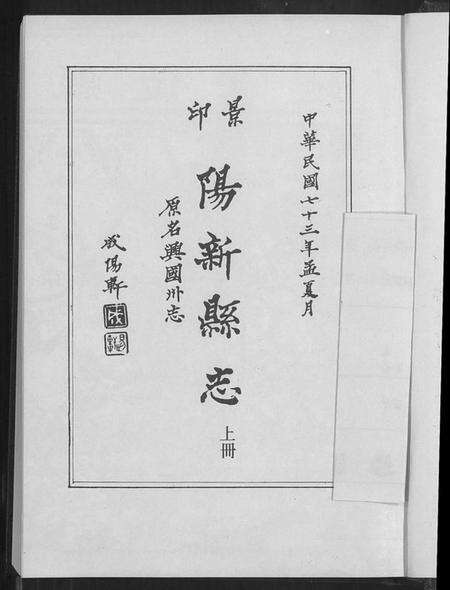 中華民國七十三年孟夏月
景印
陽新縣志
上冊
原名興國州志
成陽軒